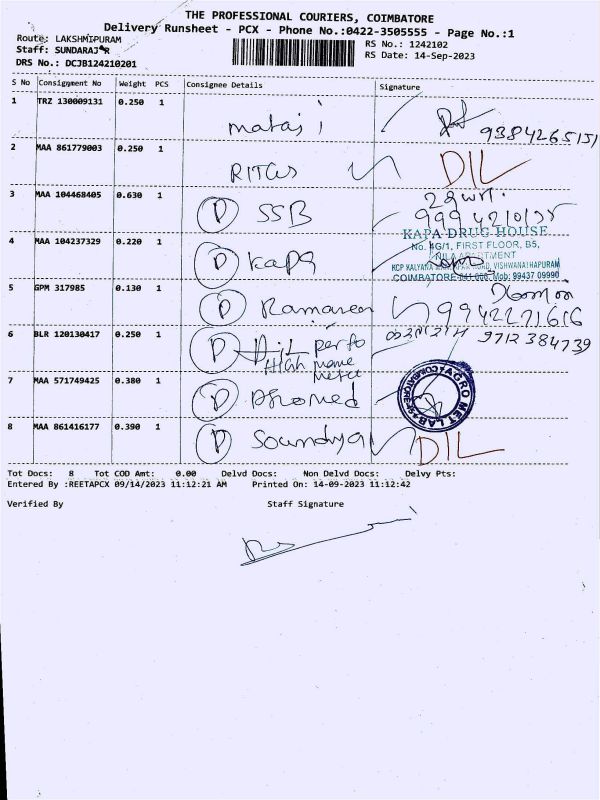 THE PROFESSIONAL COURIERS, COIMBATORE
Delivery Runsheet - PCX - Phone No.:0422-3505555 - Page No.:1
Route: LAKSHMIPURAM
RS No.: 1242102
Staff: SUNDARAJ R
RS Date: 14-Sep-2023
DRS No.: DCJB124210201
S No Consignment No Weight PCS Consignee Details Signature
1 TRZ 130009131 0.250 1 mataji 9384265151
2 MAA 861779003 0.250 1 RITas DIL
3 MAA 104468405 0.630 1 D SSB
KAPA DRUG HOUSE
No. 4G/1, FIRST FLOOR, B5,
4 MAA 104237329 0.220 1 D kapa
VISHWANATHAPURAM
COIMBATORE-641 006. Mob: 99437 09990
5 GPM 317985 0.130 1 D Ramaveer 9942271616
6 BLR 120130417 0.250 1 D 9712384739
7 MAA 571749425 0.380 1 D AGRO MET LAB COIMBATORE
8 MAA 861416177 0.390 1 D Soundya DIL
Tot Docs: 8 Tot COD Amt: 0.00 Delvd Docs: Non Delvd Docs: Delvy Pts:
Entered By :REETAPCX 09/14/2023 11:12:21 AM Printed On: 14-09-2023 11:12:42
Verified By Staff Signature